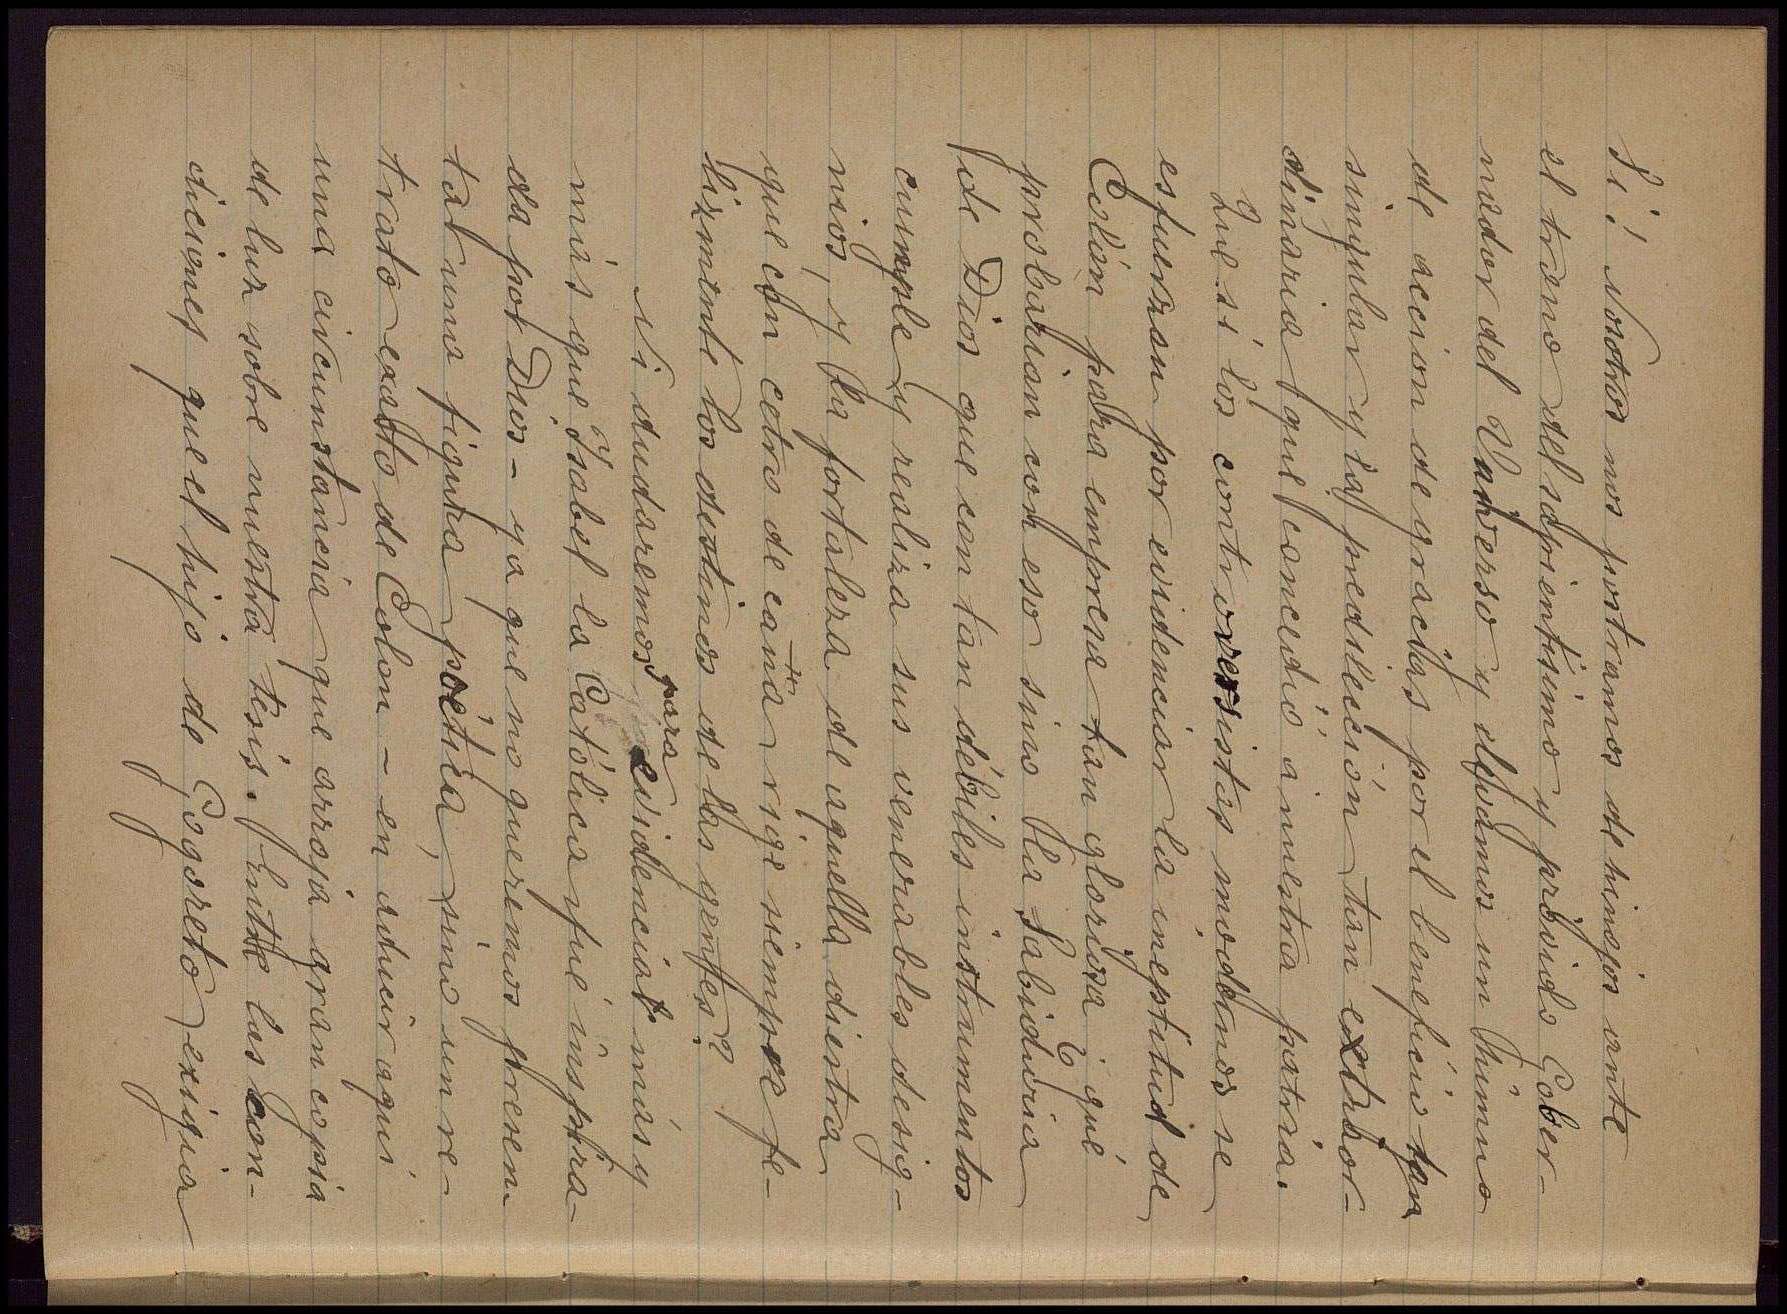 Si! Nosotros nos postramos de hinojos ante
el trono del sapientísimo y próvido Gober-
nador del Universo y elevámos un himno
de acción de gracias por el beneficio tan
singular y la predilección tan extraor-
dinaria que concedió á nuestra patria.
Que si los controversistas modernos se
esfuerzan por evidenciar la ineptitud de
Colón para empresa tan gloriosa ¿qué
probarían con eso sino la Sabiduria
de Dios que con tan débiles instrumentos
cumple y realiza sus venerables desig-
nios, y la fortaleza de aquella diestra
que con cetro de caña rige siempre fe-
lizmente los destinos de las gentes?
Ni dudaremos para evidenciar más y
más que Isabel la Católica fué inspira-
da por Dios - ya que no queremos presen-
tar una figura poética, sino un re-
trato exacto de Colon - en aducir aqui
una circunstancia que arroja gran copia
de luz sobre nuestra tesis. Entre las con-
diciones que el hijo de Cogoreto exigia